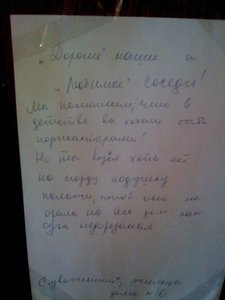 „Дорогие" наши и
„Любимые" соседи!
Мы понимаем, что в
детстве вы хотели быть
порноактёрами!
Но ты хоть ей
на морду подушку
положи, чтоб она не
орала на весь дом как
сука недорезаная
С уважением, жильцы
дома №10